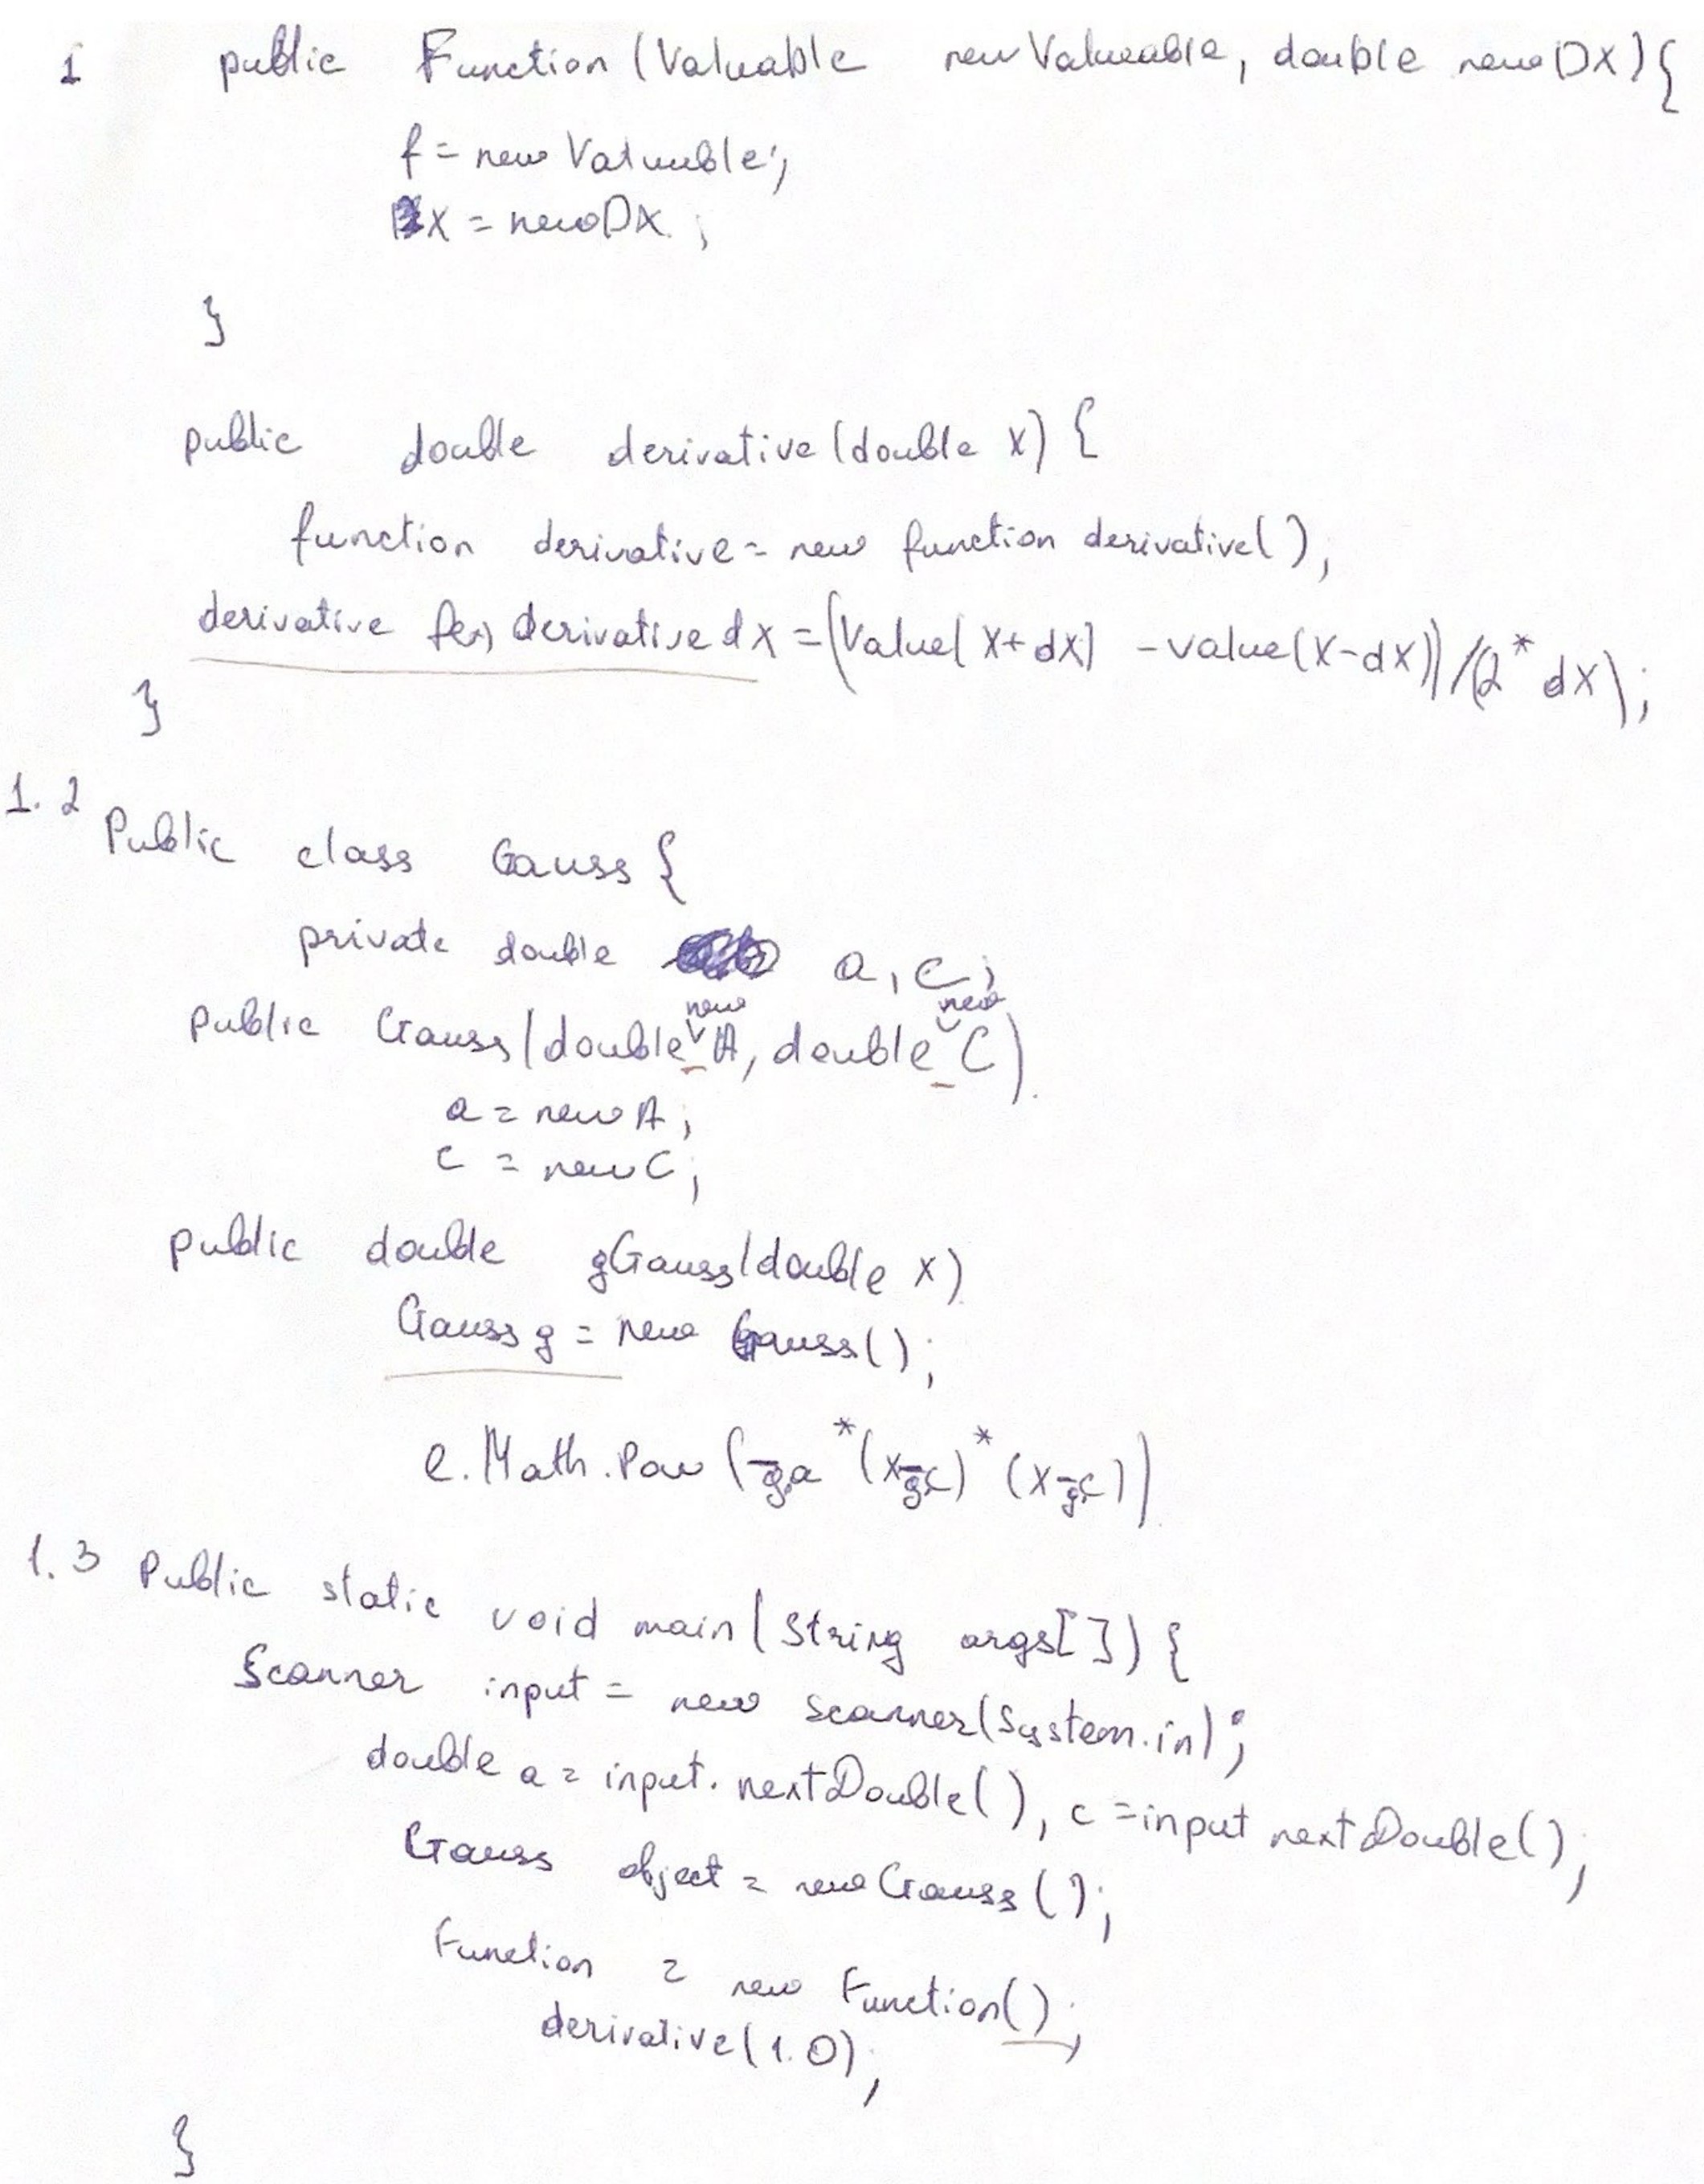 1 public Function (Valuable newValueable, double newDX){
f = new Valuable;
X = newDX.;
}
public double derivative (double x) {
function derivative = new function derivative();
derivative f(x) derivative dx = (Value(x+dx) - value(x-dx))/(2*dx);
}
1.2
Public class Gauss {
private double a, c;
new new
public Gauss(double A, double C)
a = newA;
c = newC;
public double gGauss(double x)
Gauss g = new Gauss();
e.Math.Pow (-g.a *(x-g.c) * (x-g.c))
1.3 Public static void main(String args[]) {
Scanner input = new Scanner(System.in);
double a = input.nextDouble(), c = input nextDouble();
Gauss object = new Gauss();
Function = new Function();
derivative(1.0);
}